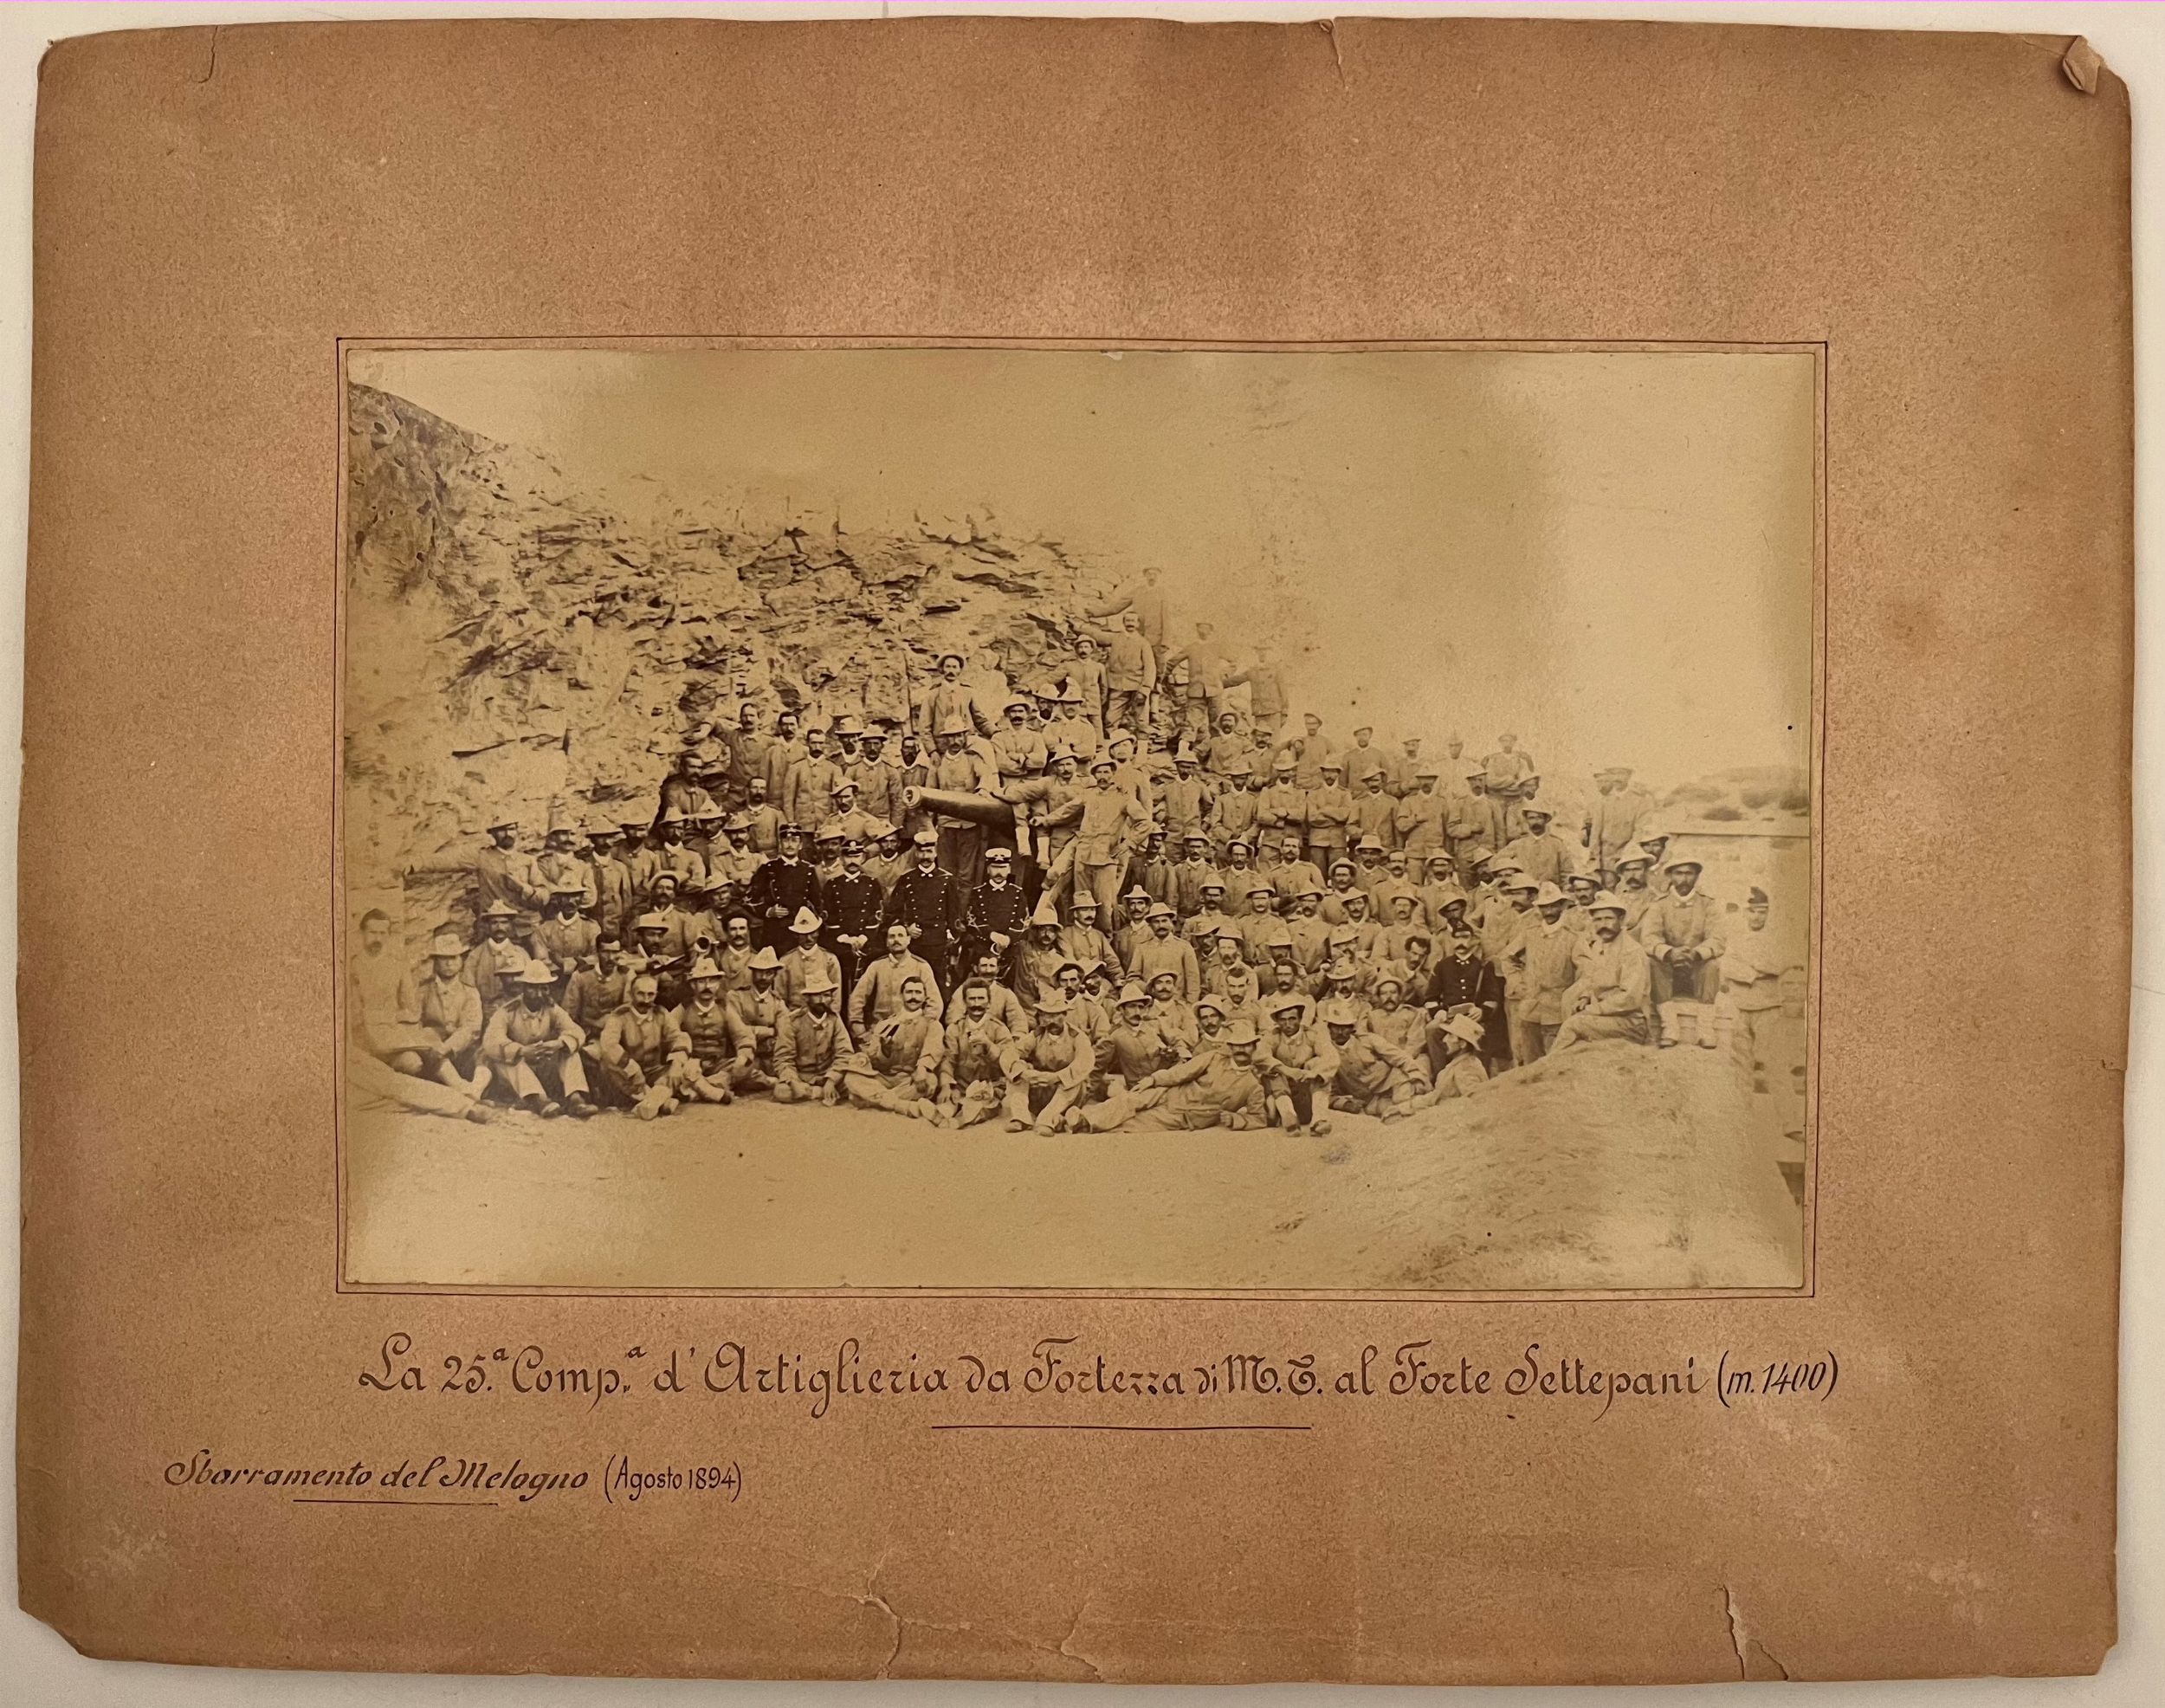 La 25.ª Comp.ª d'Artiglieria da Fortezza di M.T. al Forte Settepani (m. 1400)
Sbarramento del Melogno (Agosto 1894)